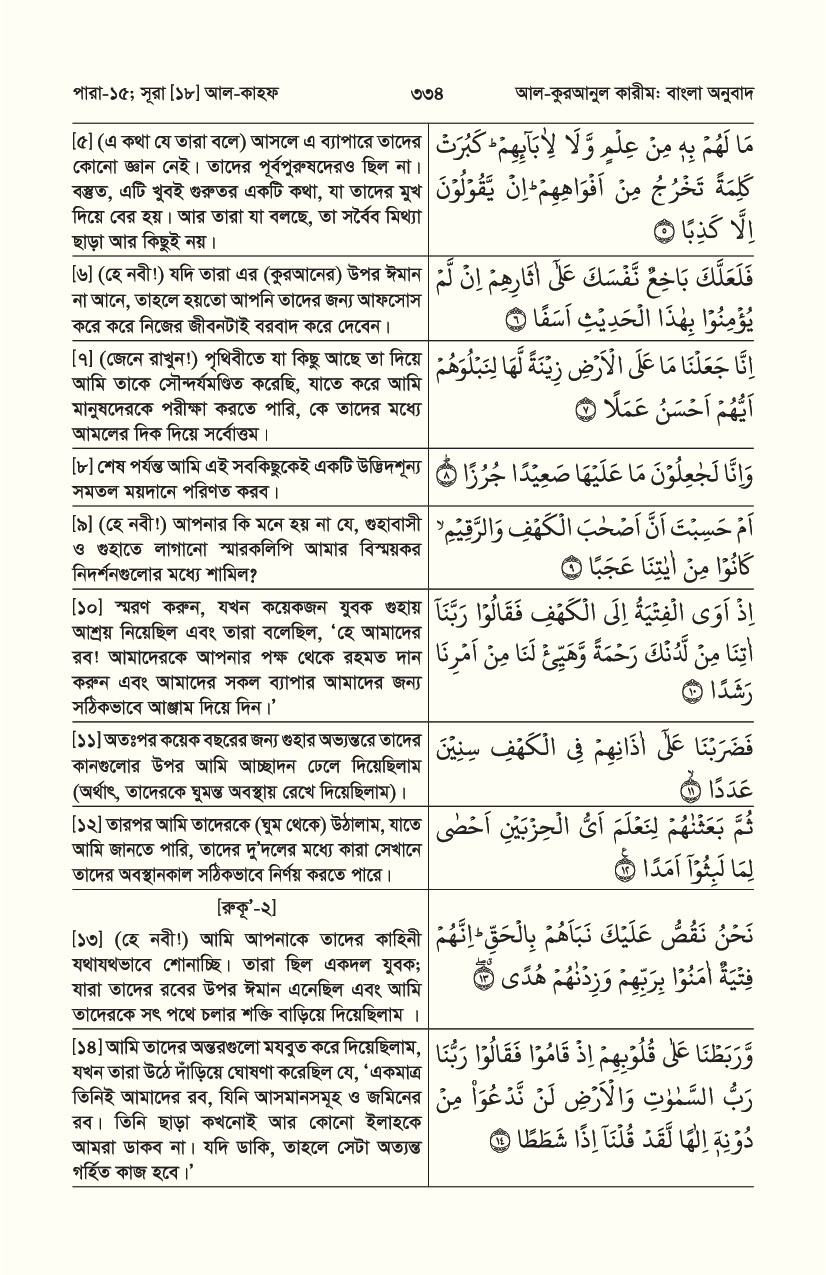 পারা-১৫; সূরা [১৮] আল-কাহফ
৩৩৪
আল-কুরআনুল কারীম: বাংলা অনুবাদ
[৫] (এ কথা যে তারা বলে) আসলে এ ব্যাপারে তাদের
কোনো জ্ঞান নেই। তাদের পূর্বপুরুষদেরও ছিল না।
বস্তুত, এটি খুবই গুরুতর একটি কথা, যা তাদের মুখ
দিয়ে বের হয়। আর তারা যা বলছে, তা সর্বৈব মিথ্যা
ছাড়া আর কিছুই নয়।
مَا لَهُمْ بِهٖ مِنْ عِلْمٍ وَّلَا لِاٰبَآئِهِمْ ؕ كَبُرَتْ
كَلِمَةً تَخْرُجُ مِنْ اَفْوَاهِهِمْ ؕ اِنْ يَّقُوْلُوْنَ
اِلَّا كَذِبًا ۝۵
[৬] (হে নবী!) যদি তারা এর (কুরআনের) উপর ঈমান
না আনে, তাহলে হয়তো আপনি তাদের জন্য আফসোস
করে করে নিজের জীবনটাই বরবাদ করে দেবেন।
فَلَعَلَّكَ بَاخِعٌ نَّفْسَكَ عَلٰٓى اٰثَارِهِمْ اِنْ لَّمْ
يُؤْمِنُوْا بِهٰذَا الْحَدِيْثِ اَسَفًا ۝۶
[৭] (জেনে রাখুন!) পৃথিবীতে যা কিছু আছে তা দিয়ে
আমি তাকে সৌন্দর্যমণ্ডিত করেছি, যাতে করে আমি
মানুষদেরকে পরীক্ষা করতে পারি, কে তাদের মধ্যে
আমলের দিক দিয়ে সর্বোত্তম।
اِنَّا جَعَلْنَا مَا عَلَى الْاَرْضِ زِيْنَةً لَّهَا لِنَبْلُوَهُمْ
اَيُّهُمْ اَحْسَنُ عَمَلًا ۝۷
[৮] শেষ পর্যন্ত আমি এই সবকিছুকেই একটি উদ্ভিদশূন্য
সমতল ময়দানে পরিণত করব।
وَاِنَّا لَجٰعِلُوْنَ مَا عَلَيْهَا صَعِيْدًا جُرُزًا ۝۸ؕ
[৯] (হে নবী!) আপনার কি মনে হয় না যে, গুহাবাসী
ও গুহাতে লাগানো স্মারকলিপি আমার বিস্ময়কর
নিদর্শনগুলোর মধ্যে শামিল?
اَمْ حَسِبْتَ اَنَّ اَصْحٰبَ الْكَهْفِ وَالرَّقِيْمِ ۙ
كَانُوْا مِنْ اٰيٰتِنَا عَجَبًا ۝۹
[১০] স্মরণ করুন, যখন কয়েকজন যুবক গুহায়
আশ্রয় নিয়েছিল এবং তারা বলেছিল, ‘হে আমাদের
রব! আমাদেরকে আপনার পক্ষ থেকে রহমত দান
করুন এবং আমাদের সকল ব্যাপার আমাদের জন্য
সঠিকভাবে আঞ্জাম দিয়ে দিন।’
اِذْ اَوَى الْفِتْيَةُ اِلَى الْكَهْفِ فَقَالُوْا رَبَّنَآ
اٰتِنَا مِنْ لَّدُنْكَ رَحْمَةً وَّهَيِّئْ لَنَا مِنْ اَمْرِنَا
رَشَدًا ۝۱۰
[১১] অতঃপর কয়েক বছরের জন্য গুহার অভ্যন্তরে তাদের
কানগুলোর উপর আমি আচ্ছাদন ঢেলে দিয়েছিলাম
(অর্থাৎ, তাদেরকে ঘুমন্ত অবস্থায় রেখে দিয়েছিলাম)।
فَضَرَبْنَا عَلٰٓى اٰذَانِهِمْ فِى الْكَهْفِ سِنِيْنَ
عَدَدًا ۝۱۱ۙ
[১২] তারপর আমি তাদেরকে (ঘুম থেকে) উঠালাম, যাতে
আমি জানতে পারি, তাদের দু’দলের মধ্যে কারা সেখানে
তাদের অবস্থানকাল সঠিকভাবে নির্ণয় করতে পারে।
ثُمَّ بَعَثْنٰهُمْ لِنَعْلَمَ اَىُّ الْحِزْبَيْنِ اَحْصٰى
لِمَا لَبِثُوْٓا اَمَدًا ۝۱۲ع
[রুকূ’-২]
[১৩] (হে নবী!) আমি আপনাকে তাদের কাহিনী
যথাযথভাবে শোনাচ্ছি। তারা ছিল একদল যুবক;
যারা তাদের রবের উপর ঈমান এনেছিল এবং আমি
তাদেরকে সৎ পথে চলার শক্তি বাড়িয়ে দিয়েছিলাম ।
نَحْنُ نَقُصُّ عَلَيْكَ نَبَاَهُمْ بِالْحَقِّ ؕ اِنَّهُمْ
فِتْيَةٌ اٰمَنُوْا بِرَبِّهِمْ وَزِدْنٰهُمْ هُدًى ۝۱۳ۖ
[১৪] আমি তাদের অন্তরগুলো মযবুত করে দিয়েছিলাম,
যখন তারা উঠে দাঁড়িয়ে ঘোষণা করেছিল যে, ‘একমাত্র
তিনিই আমাদের রব, যিনি আসমানসমূহ ও জমিনের
রব। তিনি ছাড়া কখনোই আর কোনো ইলাহকে
আমরা ডাকব না। যদি ডাকি, তাহলে সেটা অত্যন্ত
গর্হিত কাজ হবে।’
وَّرَبَطْنَا عَلٰى قُلُوْبِهِمْ اِذْ قَامُوْا فَقَالُوْا رَبُّنَا
رَبُّ السَّمٰوٰتِ وَالْاَرْضِ لَنْ نَّدْعُوَا۟ مِنْ
دُوْنِهٖٓ اِلٰهًا لَّقَدْ قُلْنَآ اِذًا شَطَطًا ۝۱۴